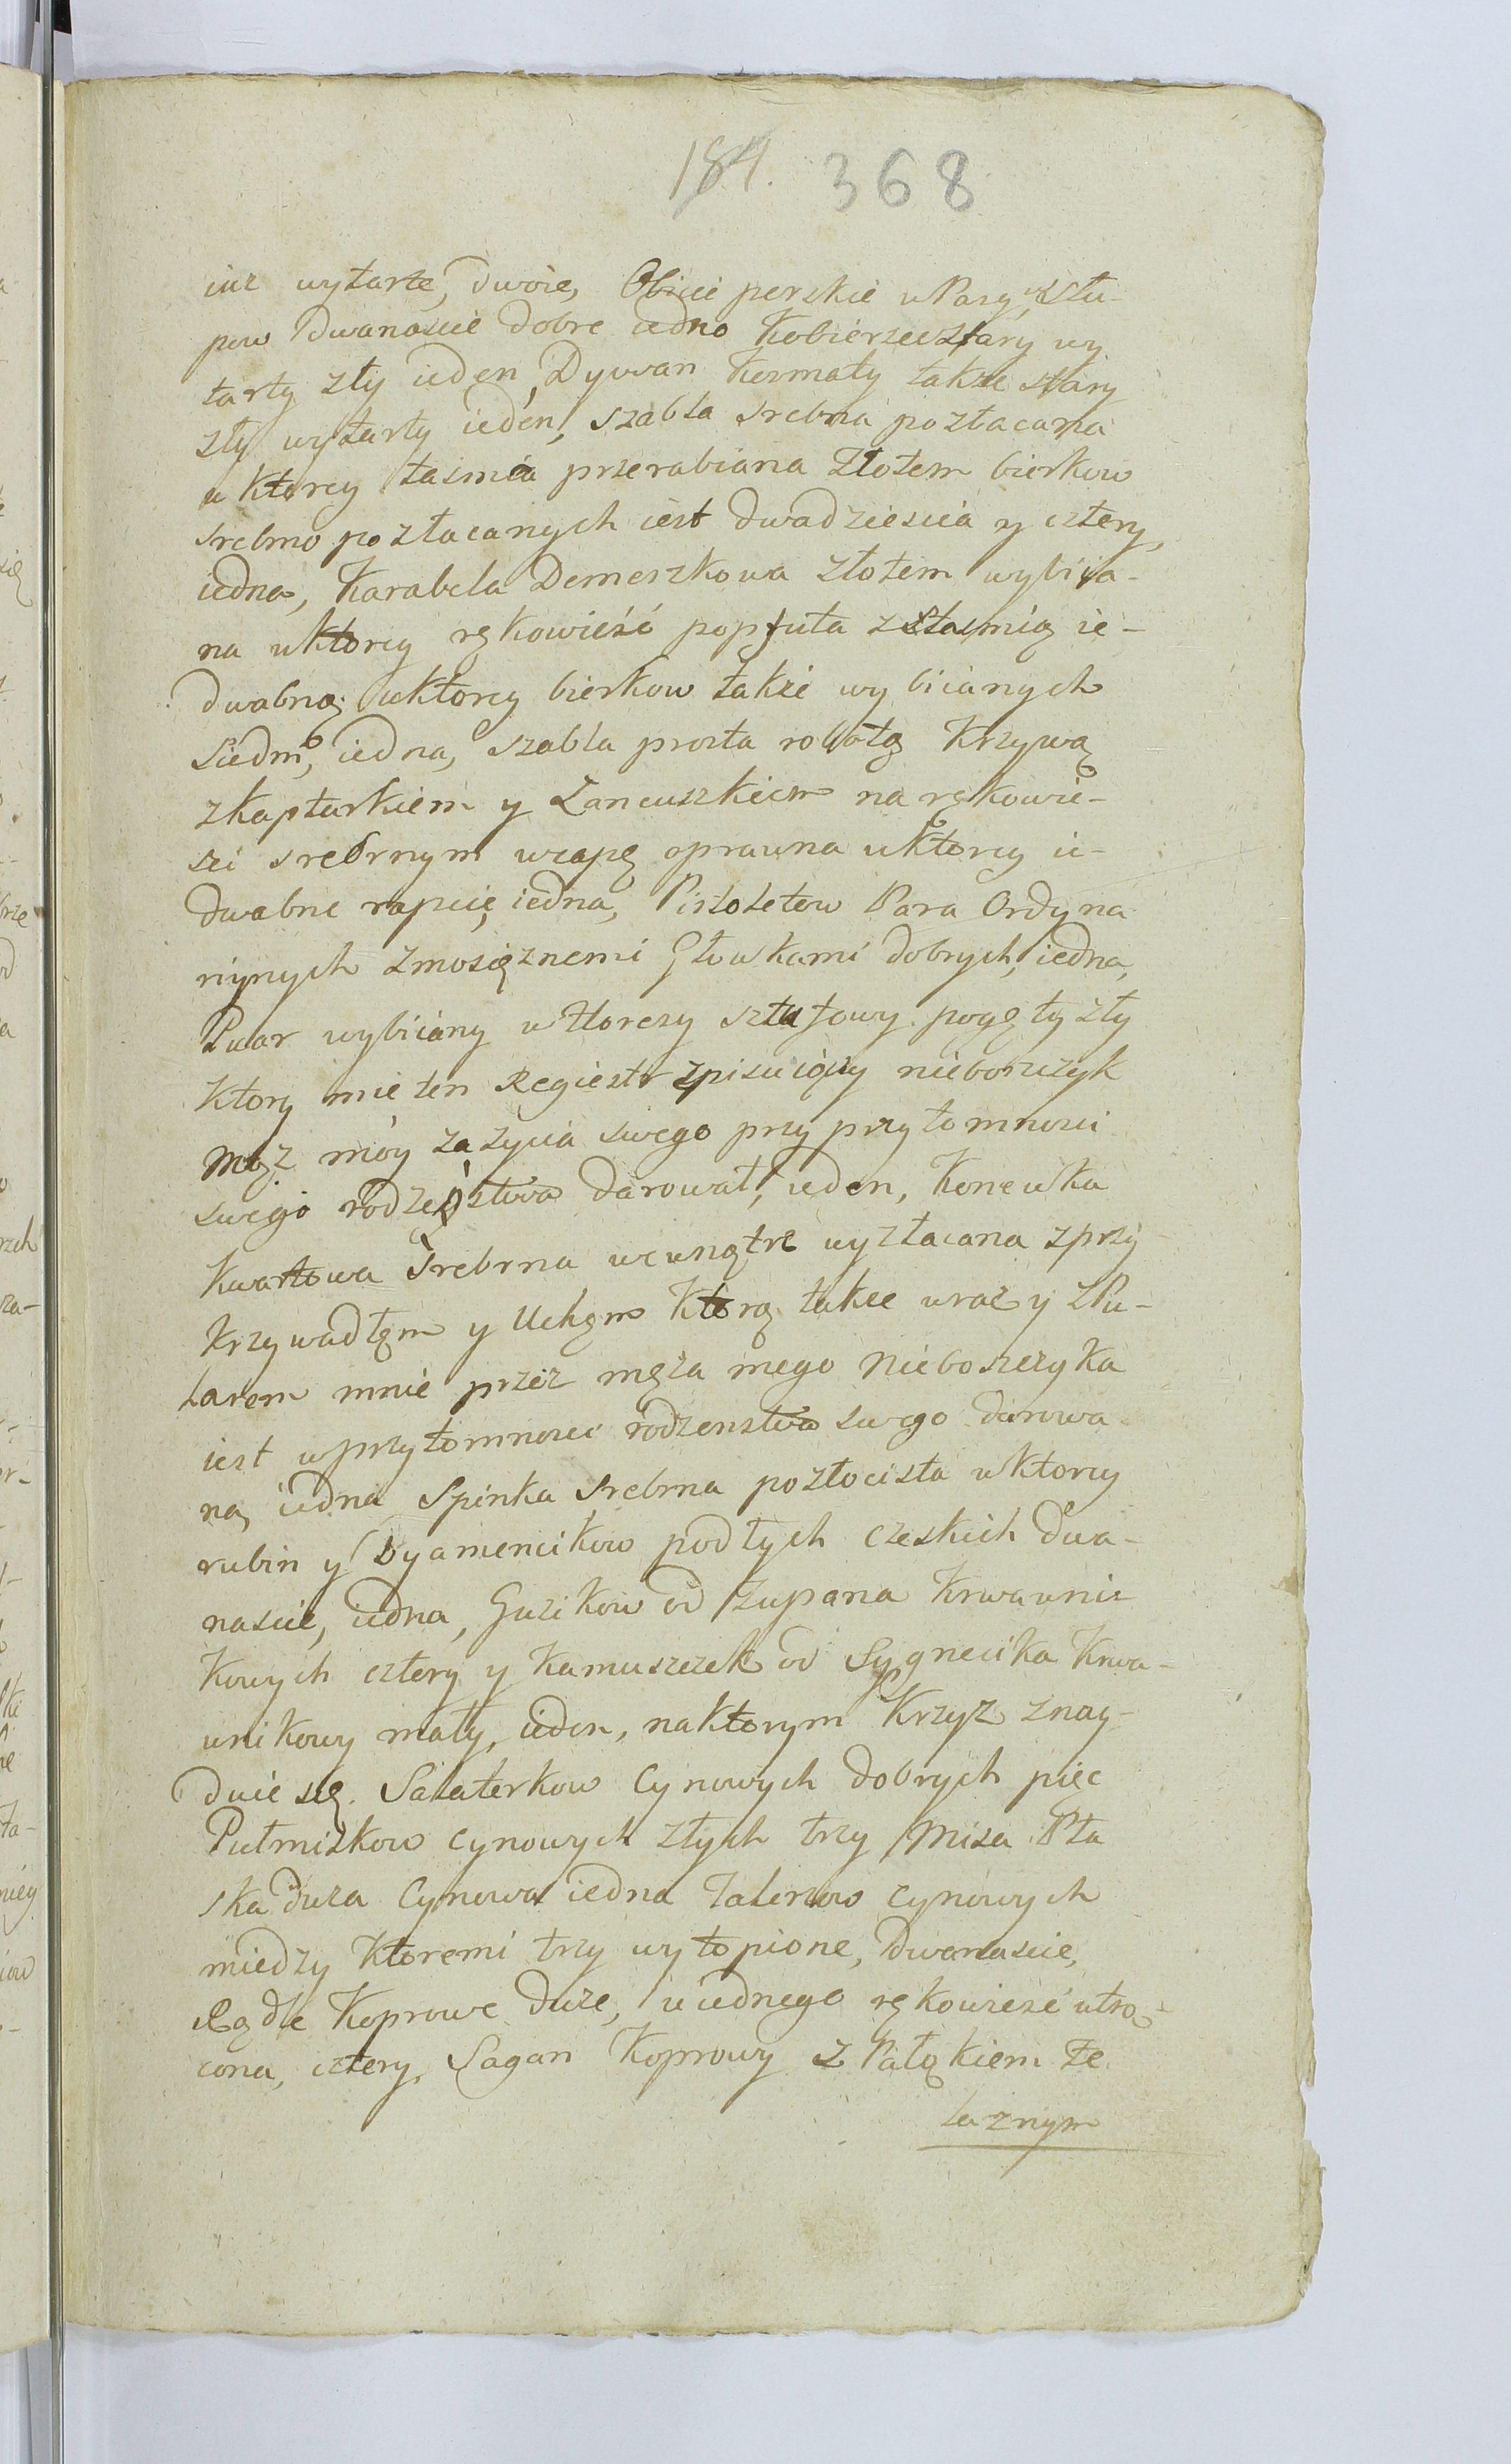 184. 368
iuż wytarte, dwoie, Obicie perskie w Pasy, w Słu-
pow dwanascie dobre iedno Kobierzec stary wy
tarty zły ieden, Dywan Kosmaty także stary
zły wytarty ieden, szabla srebrna pozłacana
u ktorey tasmia przerabiana złotem bierkow
srebrno pozłacanych iest dwadziescia y cztery,
iedna, Karabela Demeszkowa złotem wybiia-
na u ktorey rękowieść popsuta z tasmią ie-
dwabną u ktorey bierkow także wybiianych
siedm, iedna, szabla prosta robotą Krzywą
z kapturkiem y Łancuszkiem na rękowie-
sci srebrnym w capę oprawna u ktorey ie-
dwabne rapcie, iedna, Pistoletow Para Ordyna
riynych z mosięznemi Głowkami dobrych, iedna,
Puar wybiiany sztufowy pogęty zły
ktory mie ten Regiestr spisuiący nieboszczyk
mąż móy za zycia swego przy przytomnosci
swego rodzeństwa darował, ieden, Konewka
Kwartowa srebrna wewnątrz wyzłacana z przy
krzywadłem y Uchem ktorą także wraz y z Pu-
larem mnie przez męża mego nieboszczyka
iest w przytomnosci rodzenstwa swego darowa
na, iedna Spinka srebrna pozłocista u ktorey
rubin y Dyamencikow podłych czeskich dwa-
nascie, iedna, Guzikow od żupana Krwawni-
kowych cztery y kamuszczek od Sygnecika Krwa-
wnikowy mały, ieden, na ktorym Krzyz znay-
duie się. Salaterkow Cynowych dobrych pięc
Pułmiskow cynowych złych trzy Misa Pła
ska duza Cynowa iedna Talerzow cynowych
miedzy ktoremi trzy wytopione, dwanascie,
Rądle Koprowe duze, u iednego rękowiesc utrą-
cona, cztery, Sagan Koprowy z Pałąkiem że
laznym